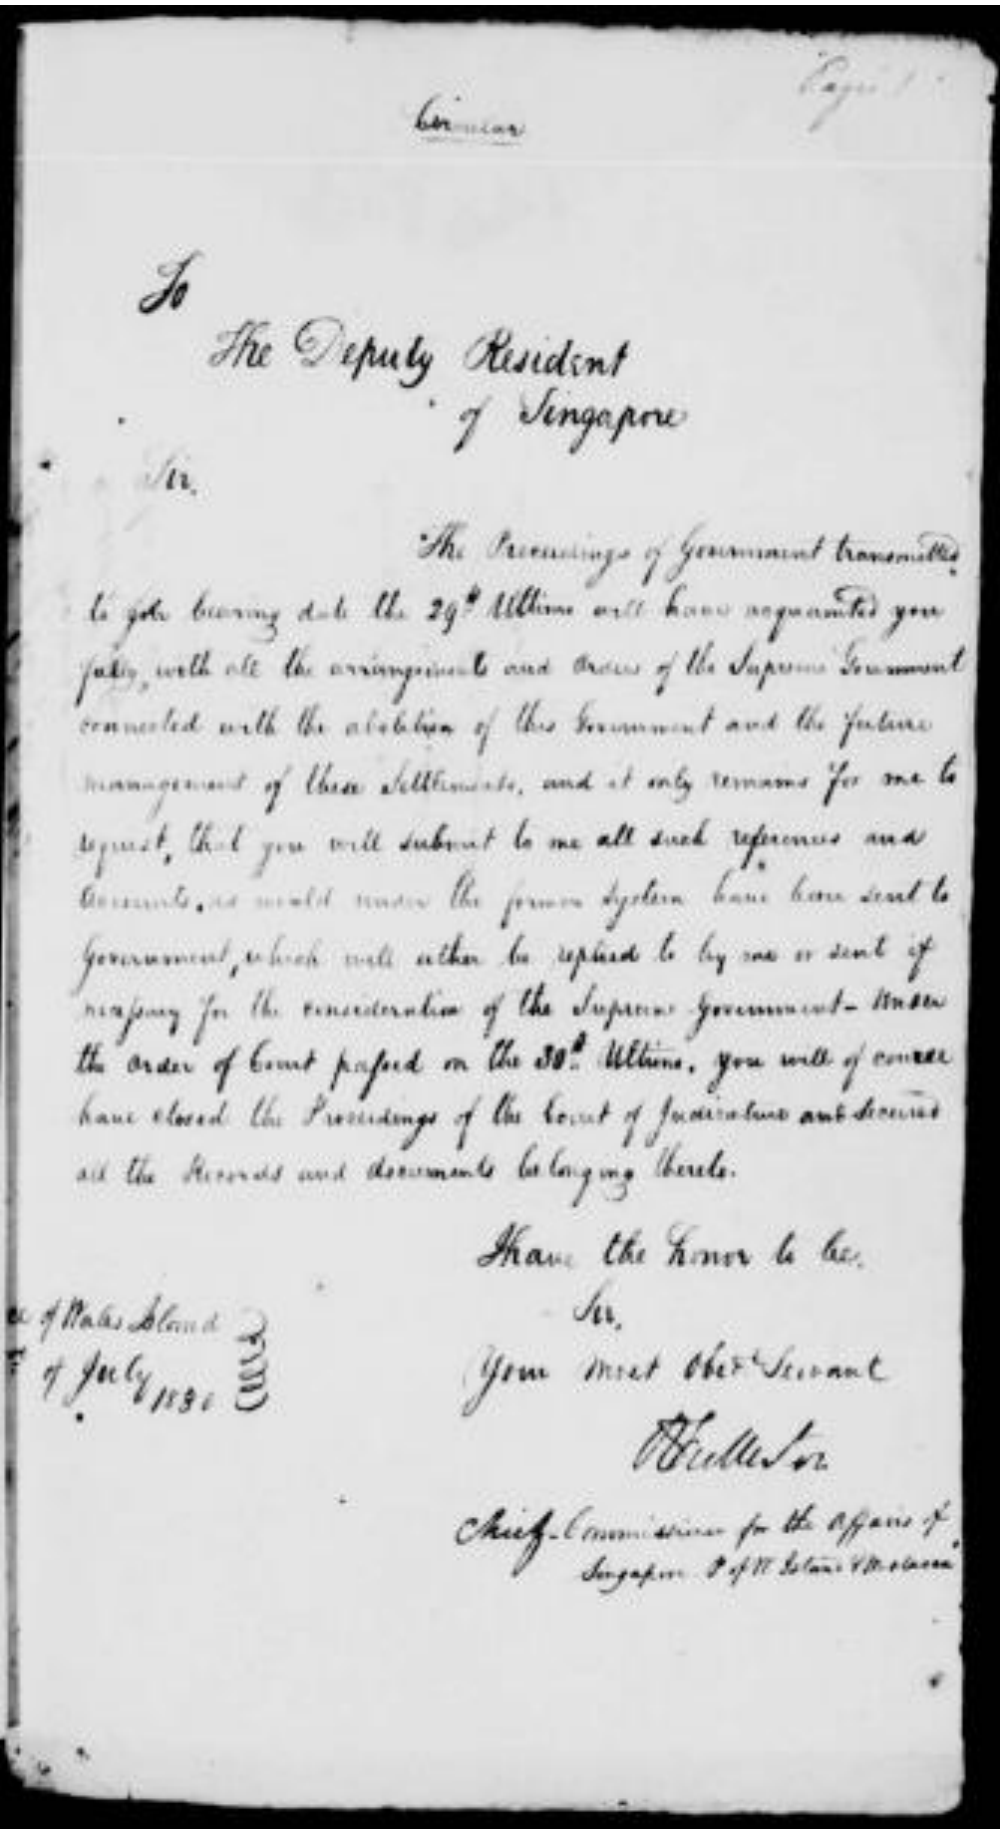 Page 1
Circular
To
The Deputy Resident
of Singapore
Sir,
The Proceedings of Government transmitted
to you bearing date the 29th Ultimo will have acquainted you
fully, with all the arrangements and Orders of the Supreme Government
connected with the abolition of this Government and the future
management of these Settlements, and it only remains for me to
request, that you will submit to me all such references and
Accounts, as would under the former system have been sent to
Government, which will either be replied to by me or sent if
necessary for the consideration of the Supreme Government - Under
the Order of Court passed on the 30th Ultimo, you will of course
have closed the Proceedings of the Court of Judicature and secured
all the Records and documents belonging thereto.
I have the honor to be,
Sir,
Your most Obedt Servant
R Fullerton
Chief Commissioner for the Affairs of
Singapore P of W Island & Malacca
of Wales Island
of July 1830